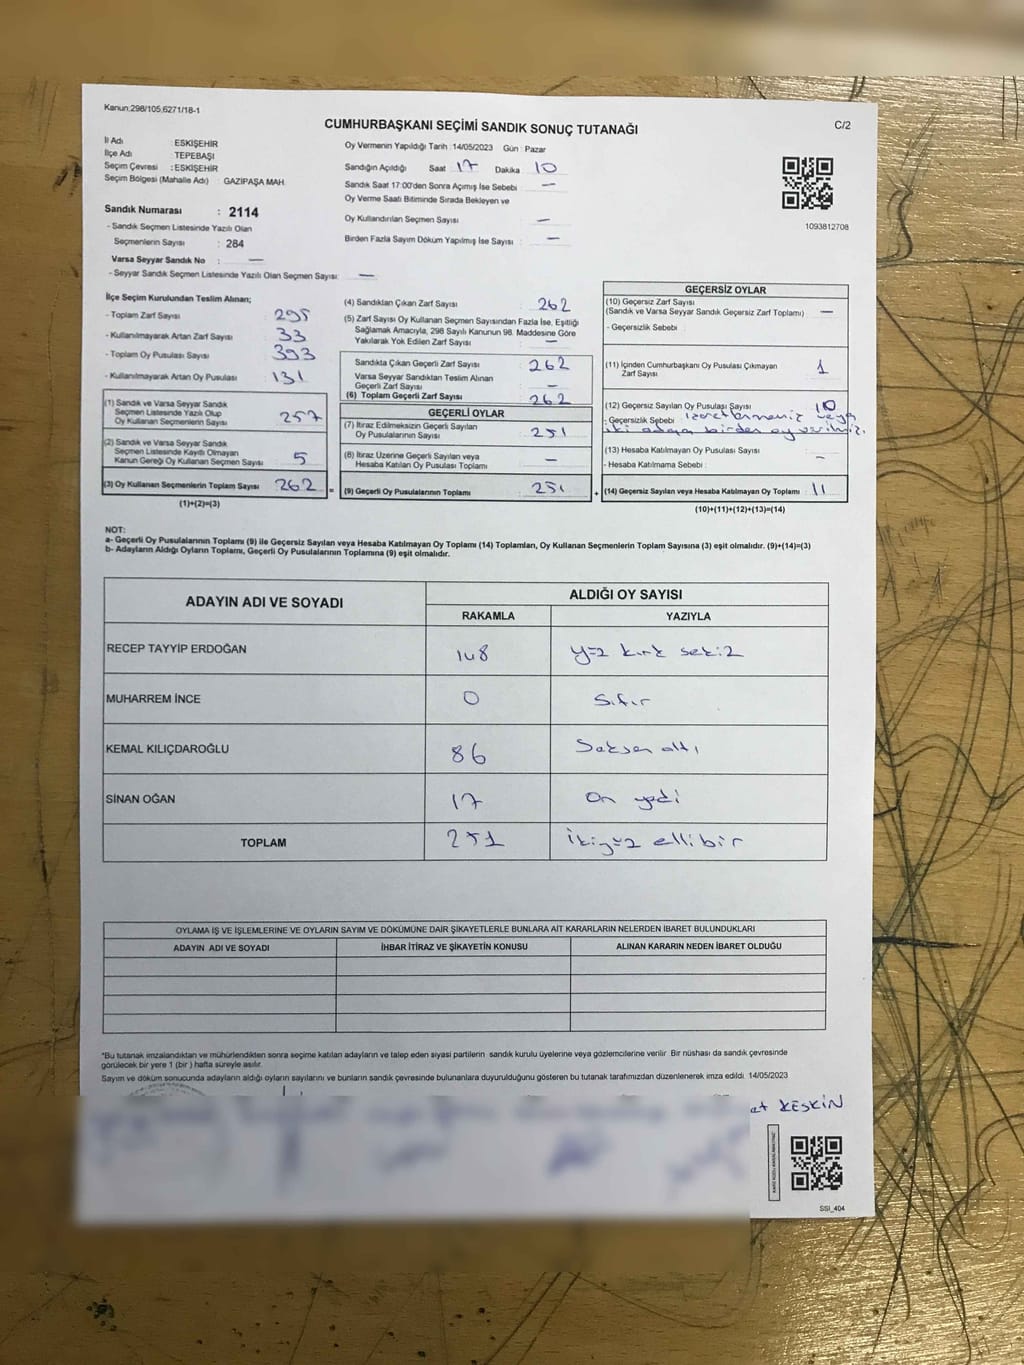 Kanun:298/105,6271/18-1
C/2
CUMHURBAŞKANI SEÇİMİ SANDIK SONUÇ TUTANAĞI
İl Adı : ESKİŞEHİR
İlçe Adı : TEPEBAŞI
Seçim Çevresi : ESKİŞEHİR
Seçim Bölgesi (Mahalle Adı) : GAZİPAŞA MAH.
Sandık Numarası : 2114
- Sandık Seçmen Listesinde Yazılı Olan
Seçmenlerin Sayısı : 284
Varsa Seyyar Sandık No : —
- Seyyar Sandık Seçmen Listesinde Yazılı Olan Seçmen Sayısı: —
Oy Vermenin Yapıldığı Tarih :14/05/2023 Gün : Pazar
Sandığın Açıldığı Saat 17 Dakika 10
Sandık Saat 17:00'den Sonra Açımış İse Sebebi : —
Oy Verme Saati Bitiminde Sırada Bekleyen ve
Oy Kullandırılan Seçmen Sayısı : —
Birden Fazla Sayım Döküm Yapılmış İse Sayısı : —
1093812708
İlçe Seçim Kurulundan Teslim Alınan;
- Toplam Zarf Sayısı : 295
- Kullanılmayarak Artan Zarf Sayısı : 33
- Toplam Oy Pusulası Sayısı : 393
- Kullanılmayarak Artan Oy Pusulası : 131
(1) Sandık ve Varsa Seyyar Sandık
Seçmen Listesinde Yazılı Olup
Oy Kullanan Seçmenlerin Sayısı : 257
(2) Sandık ve Varsa Seyyar Sandık
Seçmen Listesinde Kaydı Olmayan
Kanun Gereği Oy Kullanan Seçmen Sayısı : 5
(3) Oy Kullanan Seçmenlerin Toplam Sayısı : 262 =
(1)+(2)=(3)
(4) Sandıktan Çıkan Zarf Sayısı : 262
(5) Zarf Sayısı Oy Kullanan Seçmen Sayısından Fazla İse, Eşitliği
Sağlamak Amacıyla, 298 Sayılı Kanunun 98. Maddesine Göre
Yakılarak Yok Edilen Zarf Sayısı : —
Sandıkta Çıkan Geçerli Zarf Sayısı : 262
Varsa Seyyar Sandıktan Teslim Alınan
Geçerli Zarf Sayısı : —
(6) Toplam Geçerli Zarf Sayısı : 262
GEÇERLİ OYLAR
(7) İtiraz Edilmeksizin Geçerli Sayılan
Oy Pusulalarının Sayısı : 251
(8) İtiraz Üzerine Geçerli Sayılan veya
Hesaba Katılan Oy Pusulası Toplamı : —
(9) Geçerli Oy Pusulalarının Toplamı : 251 +
GEÇERSİZ OYLAR
(10) Geçersiz Zarf Sayısı
(Sandık ve Varsa Seyyar Sandık Geçersiz Zarf Toplamı) : —
- Geçersizlik Sebebi :
(11) İçinden Cumhurbaşkanı Oy Pusulası Çıkmayan
Zarf Sayısı : 1
(12) Geçersiz Sayılan Oy Pusulası Sayısı : 10
- Geçersizlik Sebebi : veya
iki adaya birden oy
(13) Hesaba Katılmayan Oy Pusulası Sayısı : —
- Hesaba Katılmama Sebebi :
(14) Geçersiz Sayılan veya Hesaba Katılmayan Oy Toplamı : 11
(10)+(11)+(12)+(13)=(14)
NOT:
a- Geçerli Oy Pusulalarının Toplamı (9) ile Geçersiz Sayılan veya Hesaba Katılmayan Oy Toplamı (14) Toplamları, Oy Kullanan Seçmenlerin Toplam Sayısına (3) eşit olmalıdır. (9)+(14)=(3)
b- Adayların Aldığı Oyların Toplamı, Geçerli Oy Pusulalarının Toplamına (9) eşit olmalıdır.
ADAYIN ADI VE SOYADI ALDIĞI OY SAYISI
RAKAMLA YAZIYLA
RECEP TAYYİP ERDOĞAN 148 yüz kırk sekiz
MUHARREM İNCE 0 Sıfır
KEMAL KILIÇDAROĞLU 86 Seksen altı
SİNAN OĞAN 17 On yedi
TOPLAM 251 İkiyüz ellibir
OYLAMA İŞ VE İŞLEMLERİNE VE OYLARIN SAYIM VE DÖKÜMÜNE DAİR ŞİKAYETLERLE BUNLARA AİT KARARLARIN NELERDEN İBARET BULUNDUKLARI
ADAYIN ADI VE SOYADI İHBAR İTİRAZ VE ŞİKAYETİN KONUSU ALINAN KARARIN NEDEN İBARET OLDUĞU
*Bu tutanak imzalandıktan ve mühürlendikten sonra seçime katılan adayların ve talep eden siyasi partilerin sandık kurulu üyelerine veya gözlemcilerine verilir. Bir nüshası da sandık çevresinde
görülecek bir yere 1 (bir ) hafta süreyle asılır.
Sayım ve döküm sonucunda adayların aldığı oyların sayılarını ve bunların sandık çevresinde bulunanlara duyurulduğunu gösteren bu tutanak tarafımızdan düzenlenerek imza edildi. 14/05/2023
et KESKİN
SSI_404